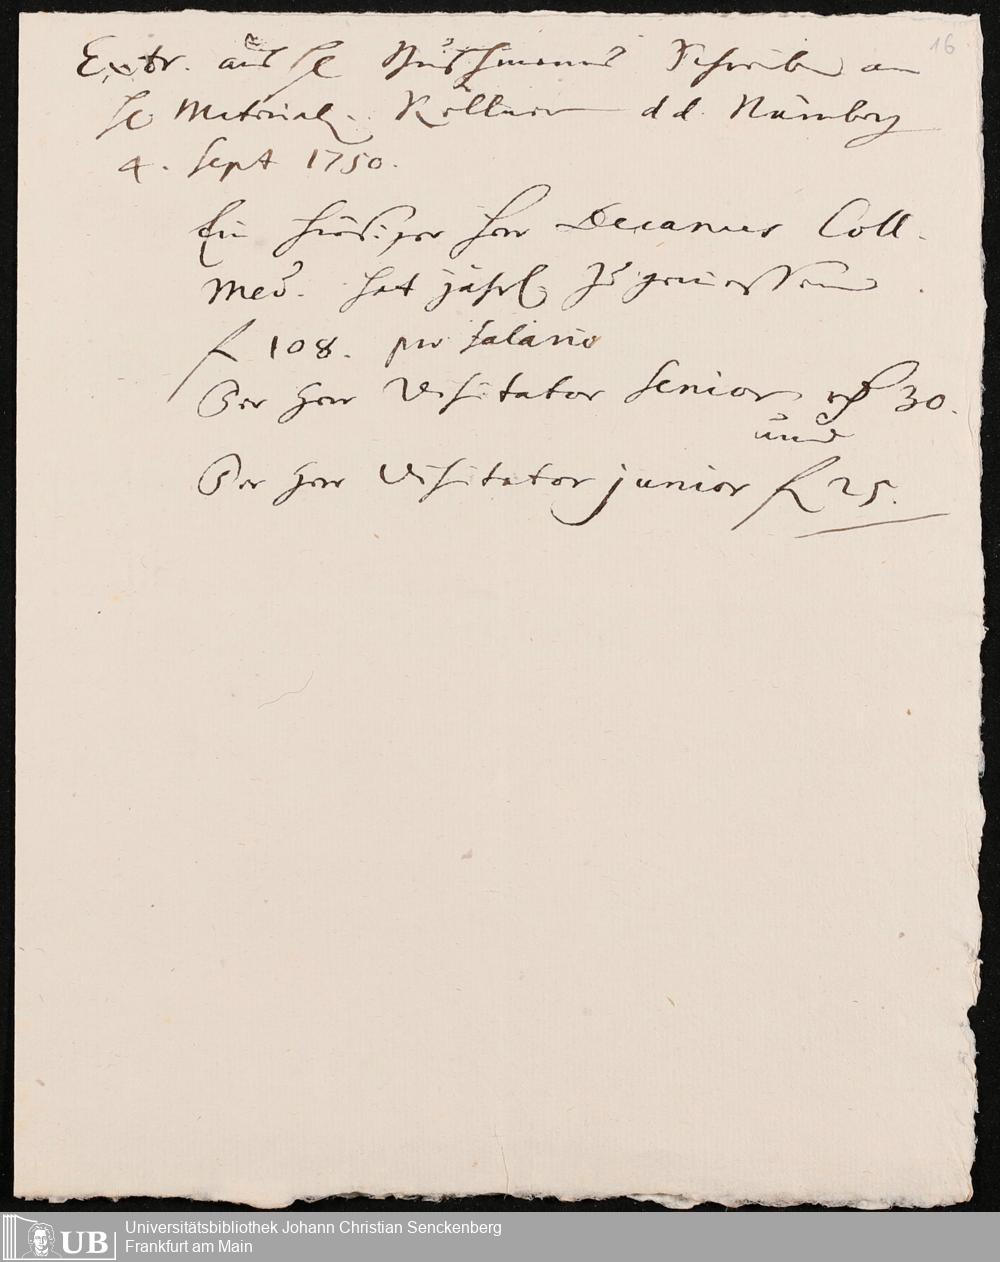 16
Extr. aus H Schreiben an
H Material. Köllner d d. Nürnberg
4. Sept 1750.
Ein hiesiger Herr Decanus Coll.
Med. hat jährl. zu geniessen
f 108. pro Salario
Der Herr Visitator Senior f 30.
und
Der Herr Visitator junior f 25.
UB
Universitätsbibliothek Johann Christian Senckenberg
Frankfurt am Main